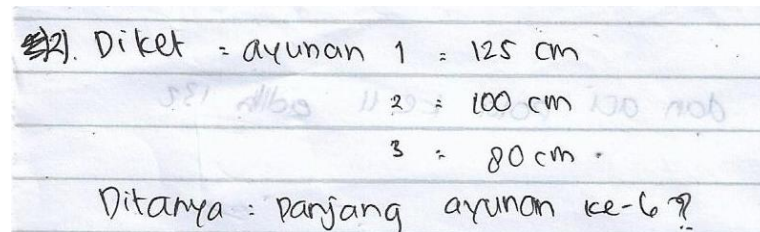 2). Diket = ayunan 1 = 125 cm
2 = 100 cm
3 = 80 cm.
Ditanya : Panjang ayunan ke-6?